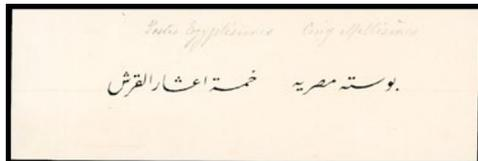 Postes Egyptiennes Cinq Millièmes
بوسته مصريه خمسة اعشار القرش